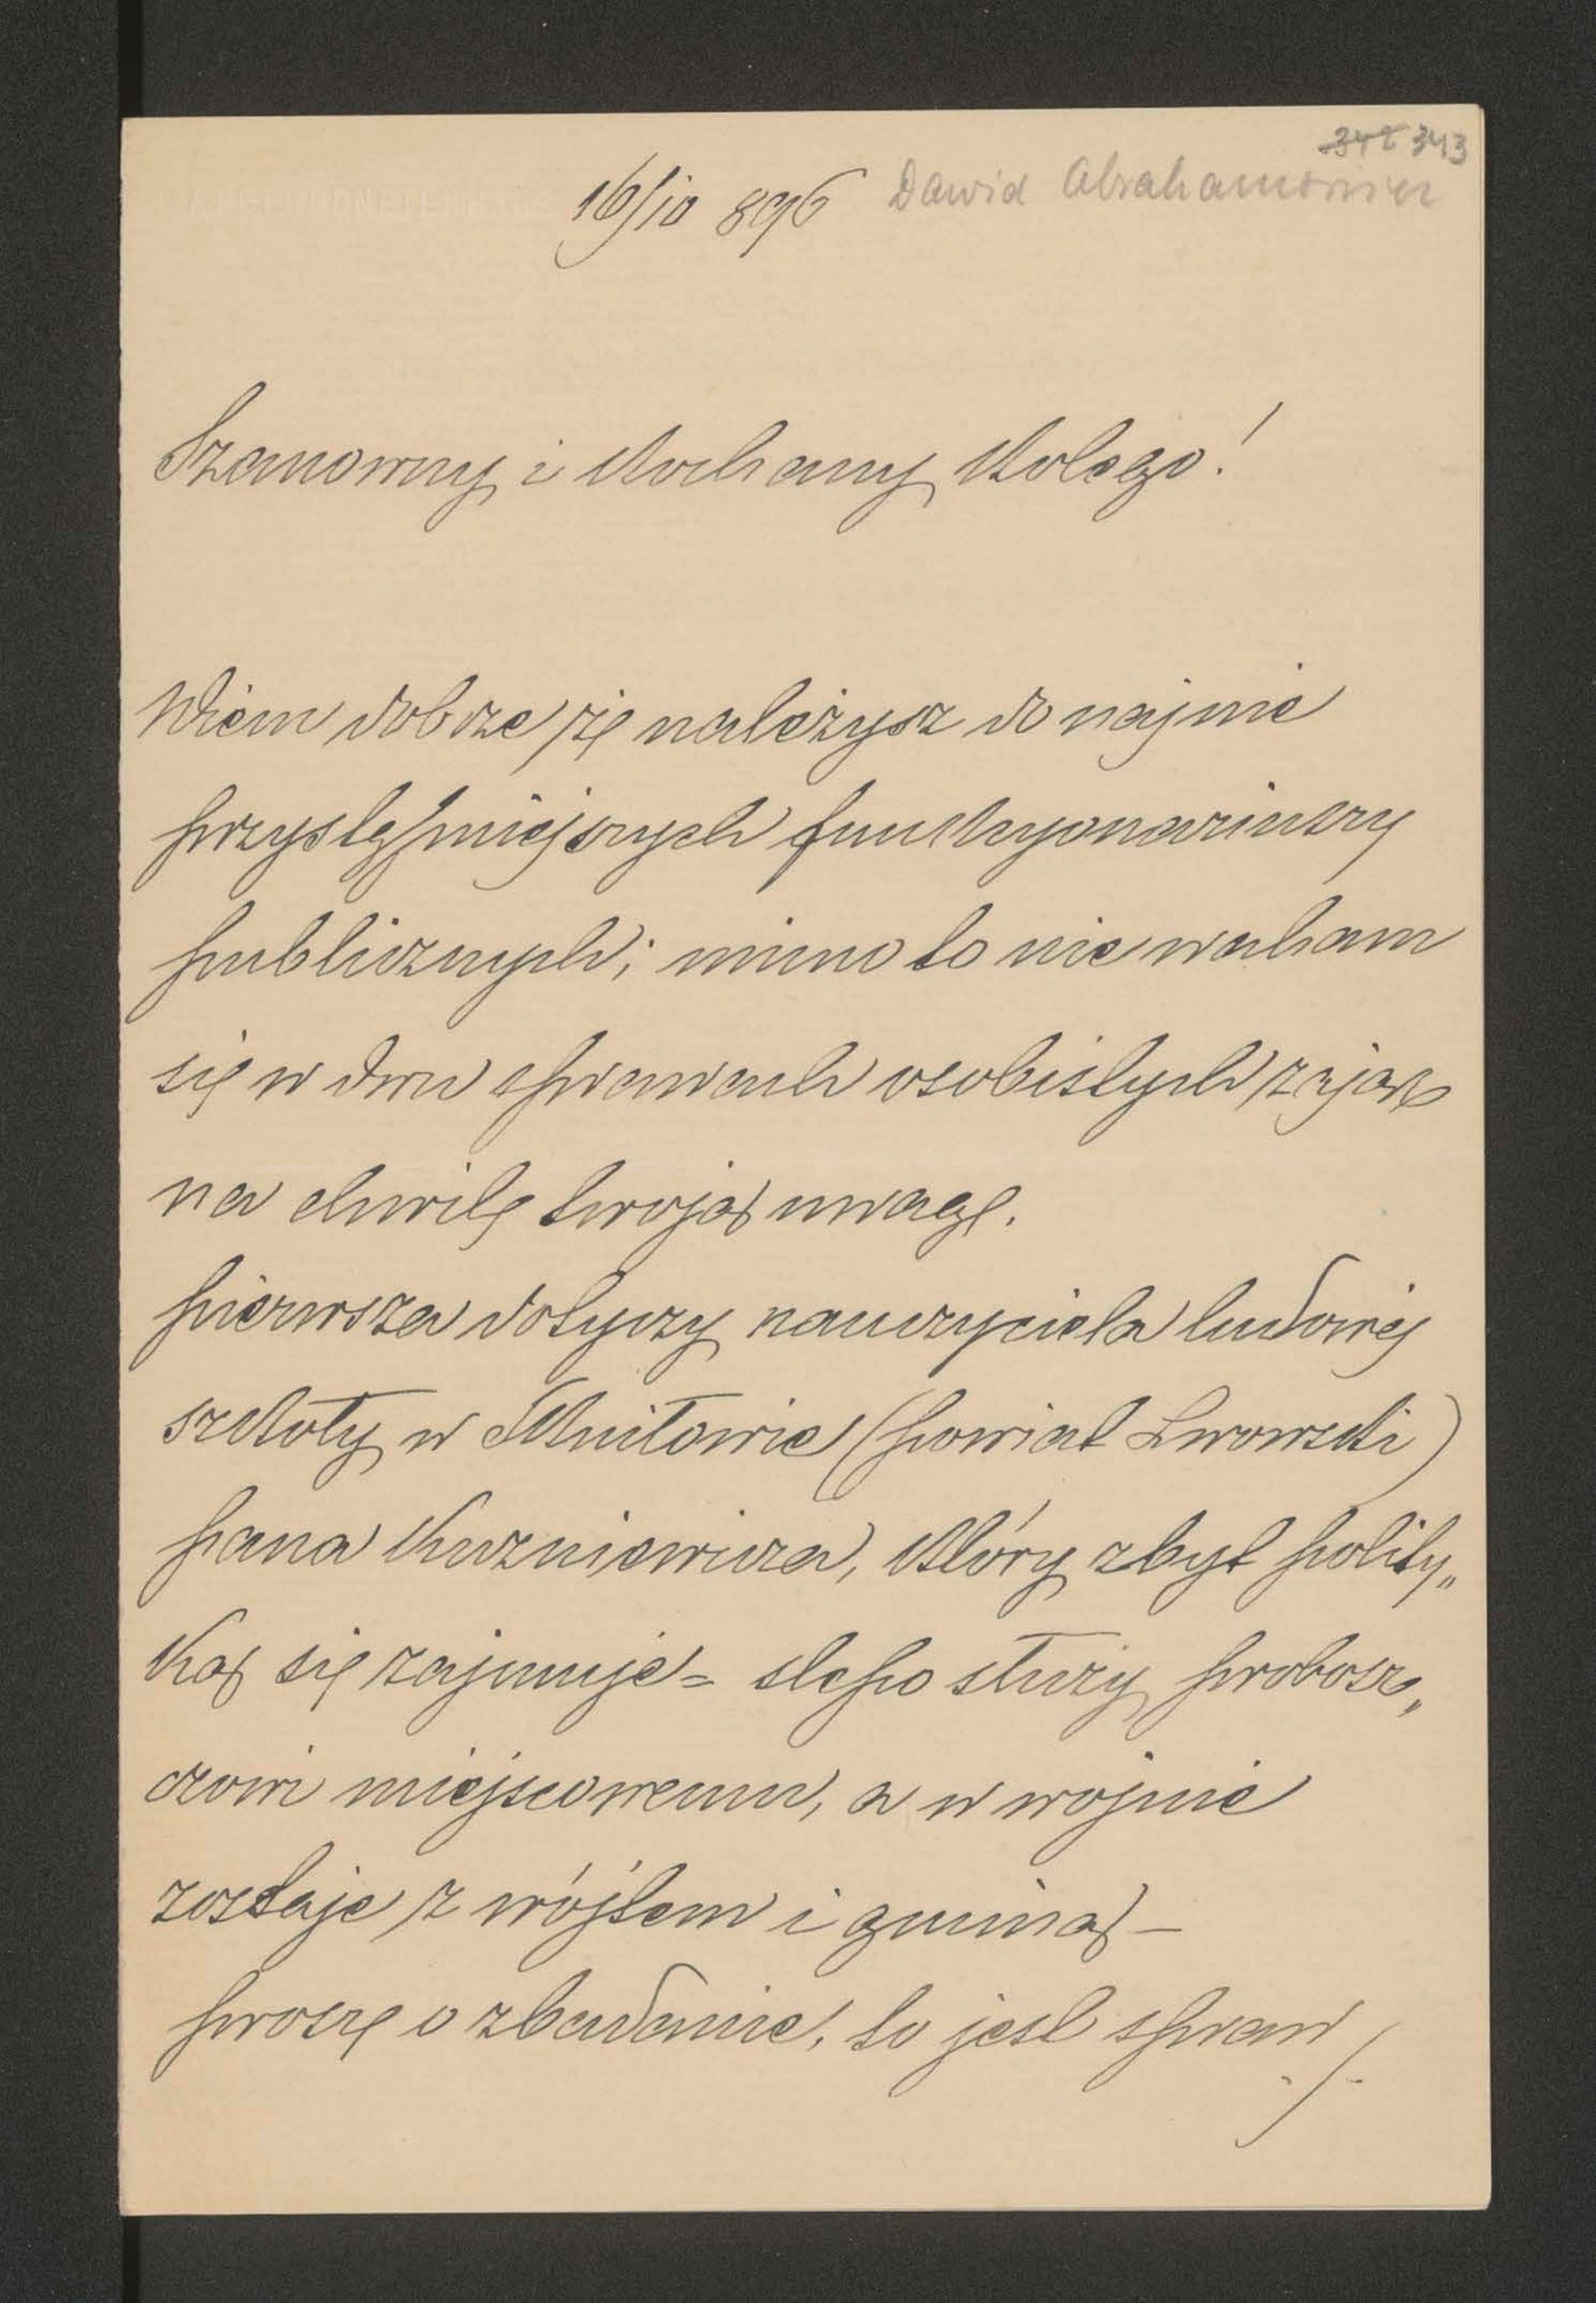 342 343
16/10 896 Dawid Abrahamowicz
Szanowny i Kochany Kolego!
Wiem dobrze, że należysz do najnie
przystępniejszych funkcyonariuszy
publicznych; mimo to nie waham
się w dwu sprawach osobistych zająć
na chwilę twoją uwagę.
pierwsza dotyczy nauczyciela ludowej
szkoły w Skniłowie (powiat Lwowski)
pana Kuzniewicza, który zbyt polity„
ką się zajmuje = slepo służy probosz„
czowi miejscowemu, a w wojnie
zostaje z wójtem i gminą —
proszę o zbadanie, to jest spraw
./.